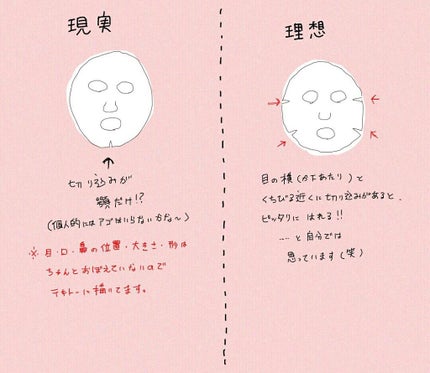 現実
切り込みが
顎だけ!?
(個人的にはアゴはいらない方だな〜)
※目・口・鼻の位置・大きさ・形は
ちゃんとおぼえていないので
テキトーに描いてます。
理想
目の横(の下あたり)と
くちびる近くに切り込みがあると、
ピッタリに はれる!!
…と自分では
思っています(笑)